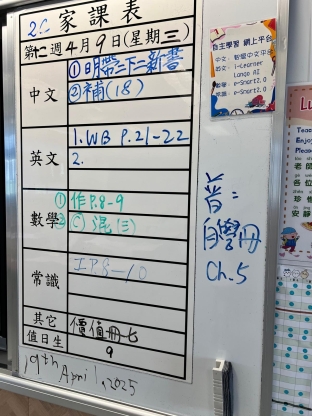 2C 家課表
第十二週 4月 9日(星期三)
中文
① 明帶三下二新書
② 補(18)
英文
1. WB P.21-22
2.
數學
① 作 P.8-9
② (C) 混(三)
常識
P.8-10
其它
價值冊七
值日生
9
9th April, 2025
普:
自學冊
Ch.5
自主學習 網上平台
中文:智愛中文平台
英文:i-Learner
Lango AI
數學:e-Smart2.0
常識:e-Smart2.0
老師
各位
珍惜
安靜